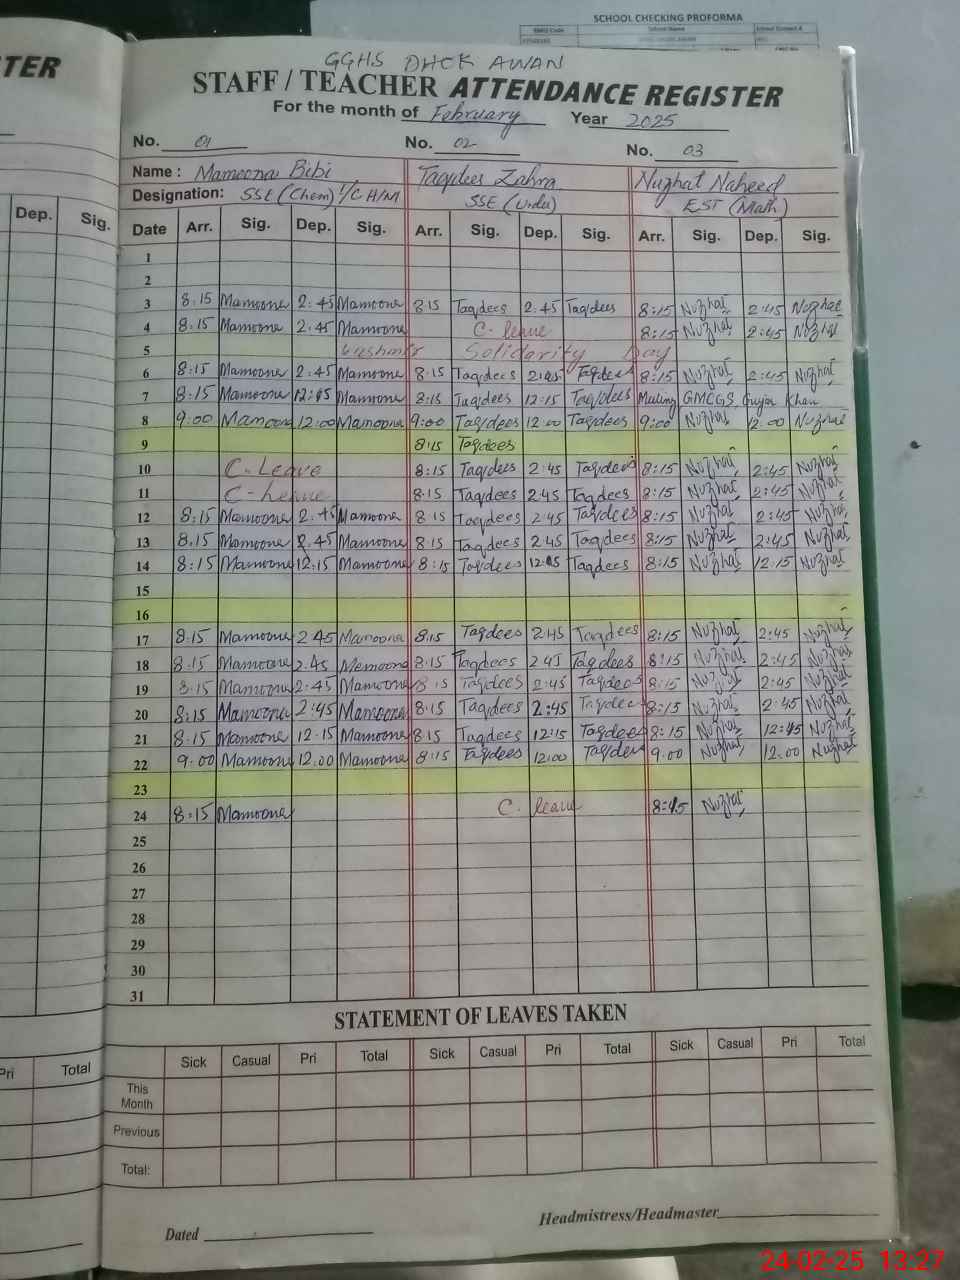 SCHOOL CHECKING PROFORMA
EMIS Code School Name School Contact #
TER
GGHS DHOK AWAN
STAFF / TEACHER ATTENDANCE REGISTER
For the month of February Year 2025
No. 01 No. 02 No. 03
Name : Mamoona Bibi Taqdees Zahra Nuzhat Naheed
Designation: SSE (Chem) I/C H/M SSE (Urdu) EST (Math)
Dep. Sig. Date Arr. Sig. Dep. Sig. Arr. Sig. Dep. Sig. Arr. Sig. Dep. Sig.
1
2
3 8:15 Mamoona 2:45 Mamoona 8:15 Taqdees 2:45 Taqdees 8:15 Nuzhat 2:45 Nuzhat
4 8:15 Mamoona 2:45 Mamoona C-leave 8:15 Nuzhat 2:45 Nuzhat
5 Kashmir Solidarity Day
6 8:15 Mamoona 2:45 Mamoona 8:15 Taqdees 2:45 Taqdees 8:15 Nuzhat 2:45 Nuzhat
7 8:15 Mamoona 12:15 Mamoona 8:15 Taqdees 12:15 Taqdees GMCGS, Gujar Khan
8 9:00 Mamoona 12:00 Mamoona 9:00 Taqdees 12:00 Taqdees 9:00 Nuzhat 12:00 Nuzhat
9 8:15 Taqdees
10 C-Leave 8:15 Taqdees 2:45 Taqdees 8:15 Nuzhat 2:45 Nuzhat
11 C-Leave 8:15 Taqdees 2:45 Taqdees 8:15 Nuzhat 2:45 Nuzhat
12 8:15 Mamoona 2:45 Mamoona 8:15 Taqdees 2:45 Taqdees 8:15 Nuzhat 2:45 Nuzhat
13 8:15 Mamoona 2:45 Mamoona 8:15 Taqdees 2:45 Taqdees 8:15 Nuzhat 2:45 Nuzhat
14 8:15 Mamoona 12:15 Mamoona 8:15 Taqdees 12:15 Taqdees 8:15 Nuzhat 12:15 Nuzhat
15
16
17 8:15 Mamoona 2:45 Mamoona 8:15 Taqdees 2:45 Taqdees 8:15 Nuzhat 2:45 Nuzhat
18 8:15 Mamoona 2:45 Mamoona 8:15 Taqdees 2:45 Taqdees 8:15 Nuzhat 2:45 Nuzhat
19 8:15 Mamoona 2:45 Mamoona 8:15 Taqdees 2:45 Taqdees 8:15 Nuzhat 2:45 Nuzhat
20 8:15 Mamoona 2:45 Mamoona 8:15 Taqdees 2:45 Taqdees 8:15 Nuzhat 2:45 Nuzhat
21 8:15 Mamoona 12:15 Mamoona 8:15 Taqdees 12:15 Taqdees 8:15 Nuzhat 12:15 Nuzhat
22 9:00 Mamoona 12:00 Mamoona 8:15 Taqdees 12:00 Taqdees 9:00 Nuzhat 12:00 Nuzhat
23
24 8:15 Mamoona C-leave 8:15 Nuzhat
25
26
27
28
29
30
31
STATEMENT OF LEAVES TAKEN
Pri Total Sick Casual Pri Total Sick Casual Pri Total Sick Casual Pri Total
This Month
Previous
Total:
Dated Headmistress/Headmaster
24-02-25 13:27